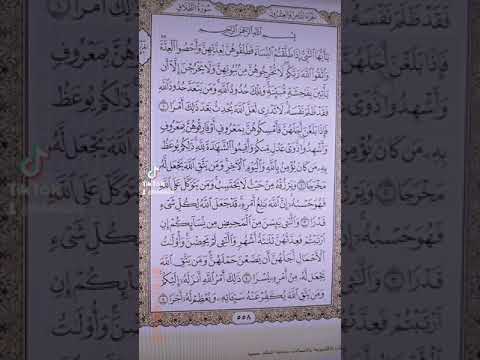 سُورَةُ الطَّلَاقِ
الجُزْءُ الثَّامِنُ وَالعِشْرُونَ
بِسْمِ اللَّهِ الرَّحْمَٰنِ الرَّحِيمِ
يَٰٓأَيُّهَا ٱلنَّبِيُّ إِذَا طَلَّقْتُمُ ٱلنِّسَآءَ فَطَلِّقُوهُنَّ لِعِدَّتِهِنَّ وَأَحْصُوا۟ ٱلْعِدَّةَ
وَٱتَّقُوا۟ ٱللَّهَ رَبَّكُمْ لَا تُخْرِجُوهُنَّ مِنۢ بُيُوتِهِنَّ وَلَا يَخْرُجْنَ إِلَّآ أَن
يَأْتِينَ بِفَٰحِشَةٍ مُّبَيِّنَةٍ وَتِلْكَ حُدُودُ ٱللَّهِ وَمَن يَتَعَدَّ حُدُودَ ٱللَّهِ
فَقَدْ ظَلَمَ نَفْسَهُۥ لَا تَدْرِى لَعَلَّ ٱللَّهَ يُحْدِثُ بَعْدَ ذَٰلِكَ أَمْرًا ١
فَإِذَا بَلَغْنَ أَجَلَهُنَّ فَأَمْسِكُوهُنَّ بِمَعْرُوفٍ أَوْ فَارِقُوهُنَّ بِمَعْرُوفٍ
وَأَشْهِدُوا۟ ذَوَىْ عَدْلٍ مِّنكُمْ وَأَقِيمُوا۟ ٱلشَّهَٰدَةَ لِلَّهِ ذَٰلِكُمْ يُوعَظُ
بِهِۦ مَن كَانَ يُؤْمِنُ بِٱللَّهِ وَٱلْيَوْمِ ٱلْءَاخِرِ وَمَن يَتَّقِ ٱللَّهَ يَجْعَل لَّهُۥ
مَخْرَجًا ٢ وَيَرْزُقْهُ مِنْ حَيْثُ لَا يَحْتَسِبُ وَمَن يَتَوَكَّلْ عَلَى ٱللَّهِ
فَهُوَ حَسْبُهُۥٓ إِنَّ ٱللَّهَ بَٰلِغُ أَمْرِهِۦ قَدْ جَعَلَ ٱللَّهُ لِكُلِّ شَىْءٍ
قَدْرًا ٣ وَٱلَّٰٓـِٔى يَئِسْنَ مِنَ ٱلْمَحِيضِ مِن نِّسَآئِكُمْ إِنِ
ٱرْتَبْتُمْ فَعِدَّتُهُنَّ ثَلَٰثَةُ أَشْهُرٍ وَٱلَّٰٓـِٔى لَمْ يَحِضْنَ وَأُو۟لَٰتُ
ٱلْأَحْمَالِ أَجَلُهُنَّ أَن يَضَعْنَ حَمْلَهُنَّ وَمَن يَتَّقِ ٱللَّهَ
يَجْعَل لَّهُۥ مِنْ أَمْرِهِۦ يُسْرًا ٤ ذَٰلِكَ أَمْرُ ٱللَّهِ أَنزَلَهُۥٓ إِلَيْكُمْ
وَمَن يَتَّقِ ٱللَّهَ يُكَفِّرْ عَنْهُ سَيِّـَٔاتِهِۦ وَيُعْظِمْ لَهُۥٓ أَجْرًا ٥
٥٥٨
TikTok